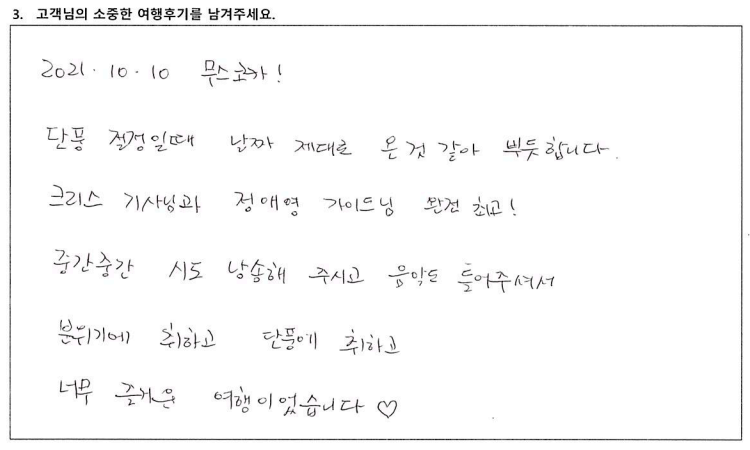 3. 고객님의 소중한 여행후기를 남겨주세요.
2021.10.10 무스코카!
단풍 절정일때 날짜 제대로 온것 같아 뿌듯합니다.
크리스 기사님과 정애영 가이드님 완전 최고!
중간중간 시도 낭송해 주시고 음악도 틀어주셔서
분위기에 취하고 단풍에 취하고
너무 즐거운 여행이었습니다 ♡